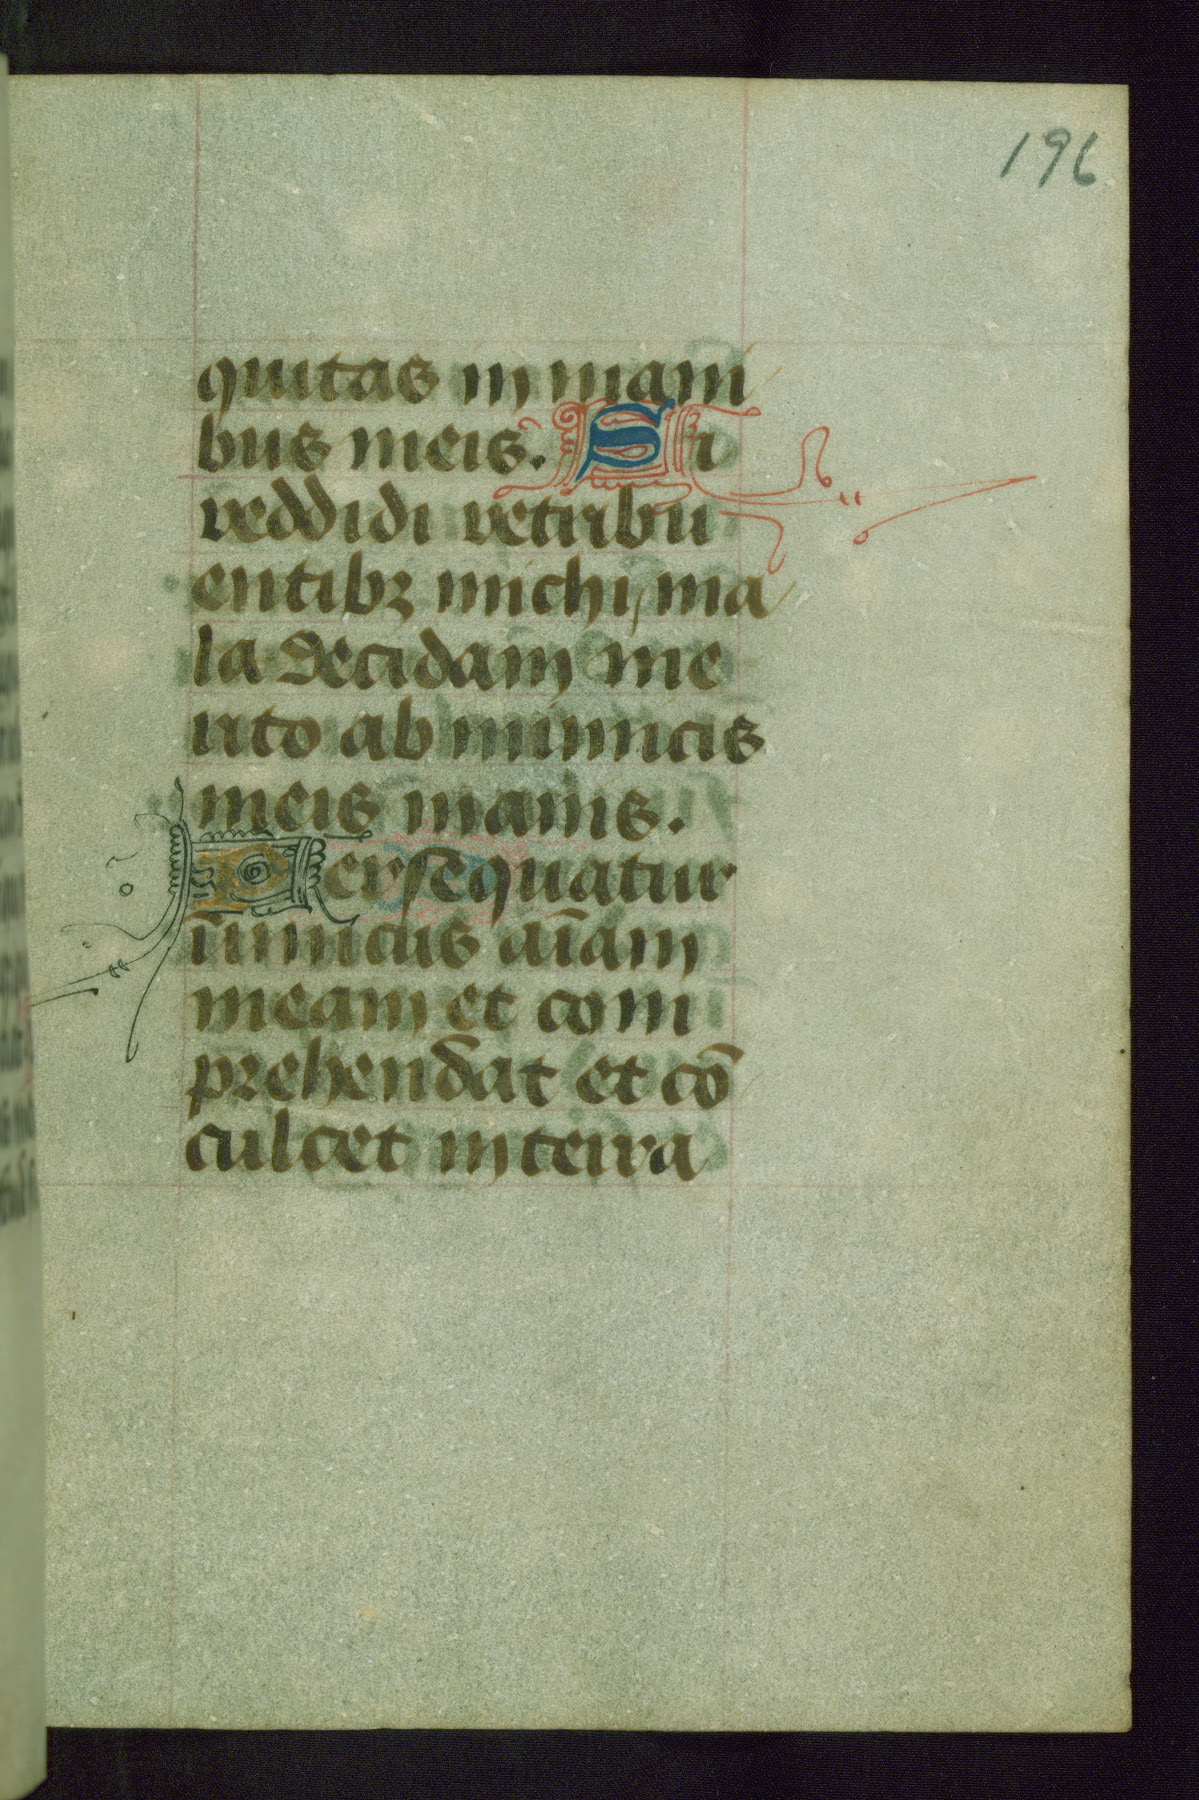 196
quitas in mani
bus meis. Si
reddidi retribu
entibꝫ michi ma
la decidam me
rito ab inimicis
meis inanis.
Persequatur
īimicus aīam
meam et com
prehendat et cō
culcet in terra